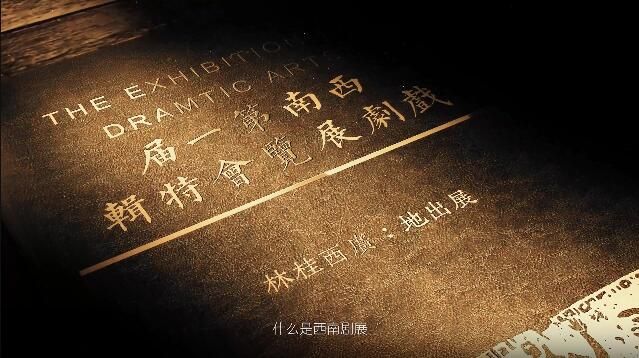 THE EXHIBITION
DRAMTIC ARTS
西南第一届
戲劇展覽會特輯
展出地：廣西桂林
什么是西南剧展